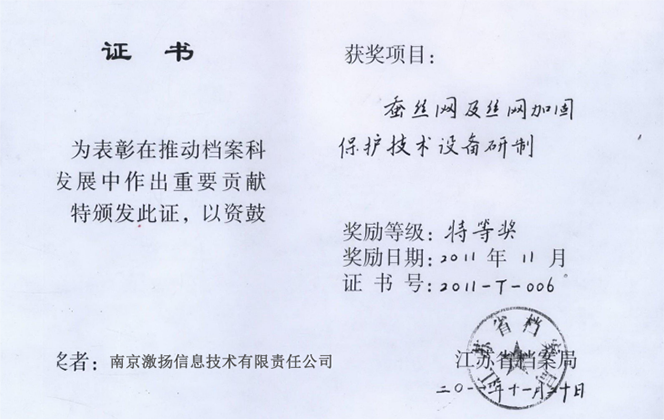 证 书
为表彰在推动档案科
发展中作出重要贡献
特颁发此证，以资鼓
奖者：南京激扬信息技术有限责任公司
获奖项目：
蚕丝网及丝网加固
保护技术设备研制
奖励等级：特等奖
奖励日期：2011 年 11 月
证 书 号：2011-T-006
江苏省档案局
江苏省档案局
二〇一一年十一月二十日